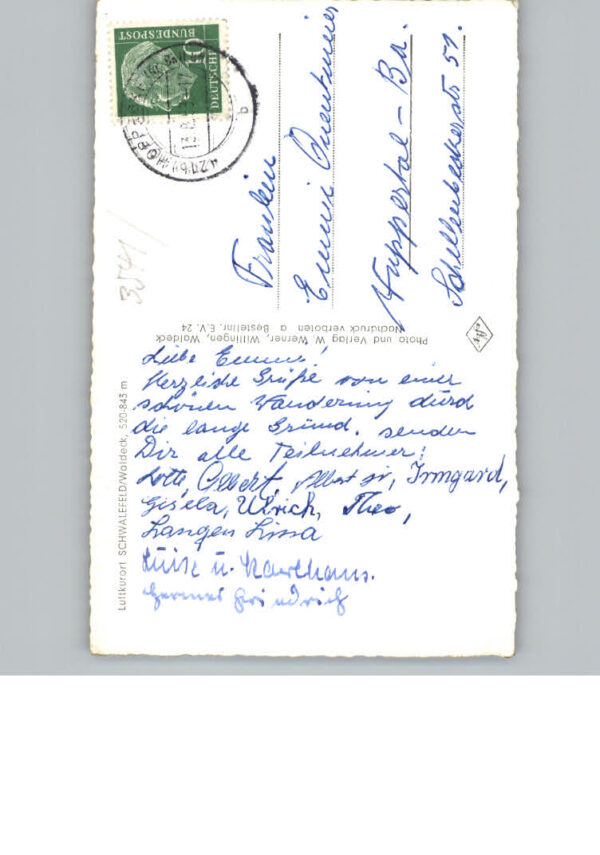 Liebe Emmi!
Herzliche Grüße von einer
schönen Wanderung durch
die lange Grund. senden
Dir alle Teilnehmer:
Lotte, Albert, Albert jr, Irmgard,
Gisela, Ulrich, Theo,
Langen Lissa
Luise u. Karlhans.
Friedrich
Fräulein
Emmi
Wuppertal-Ba.
Schellenbeckerstr 51.
Luftkurort SCHWALEFELD/Waldeck, 520-843 m
Photo und Verlag W. Werner, Willingen, Waldeck
Nachdruck verboten a Bestellnr. E.V. 24
DEUTSCHE
BUNDESPOST
10
3541/